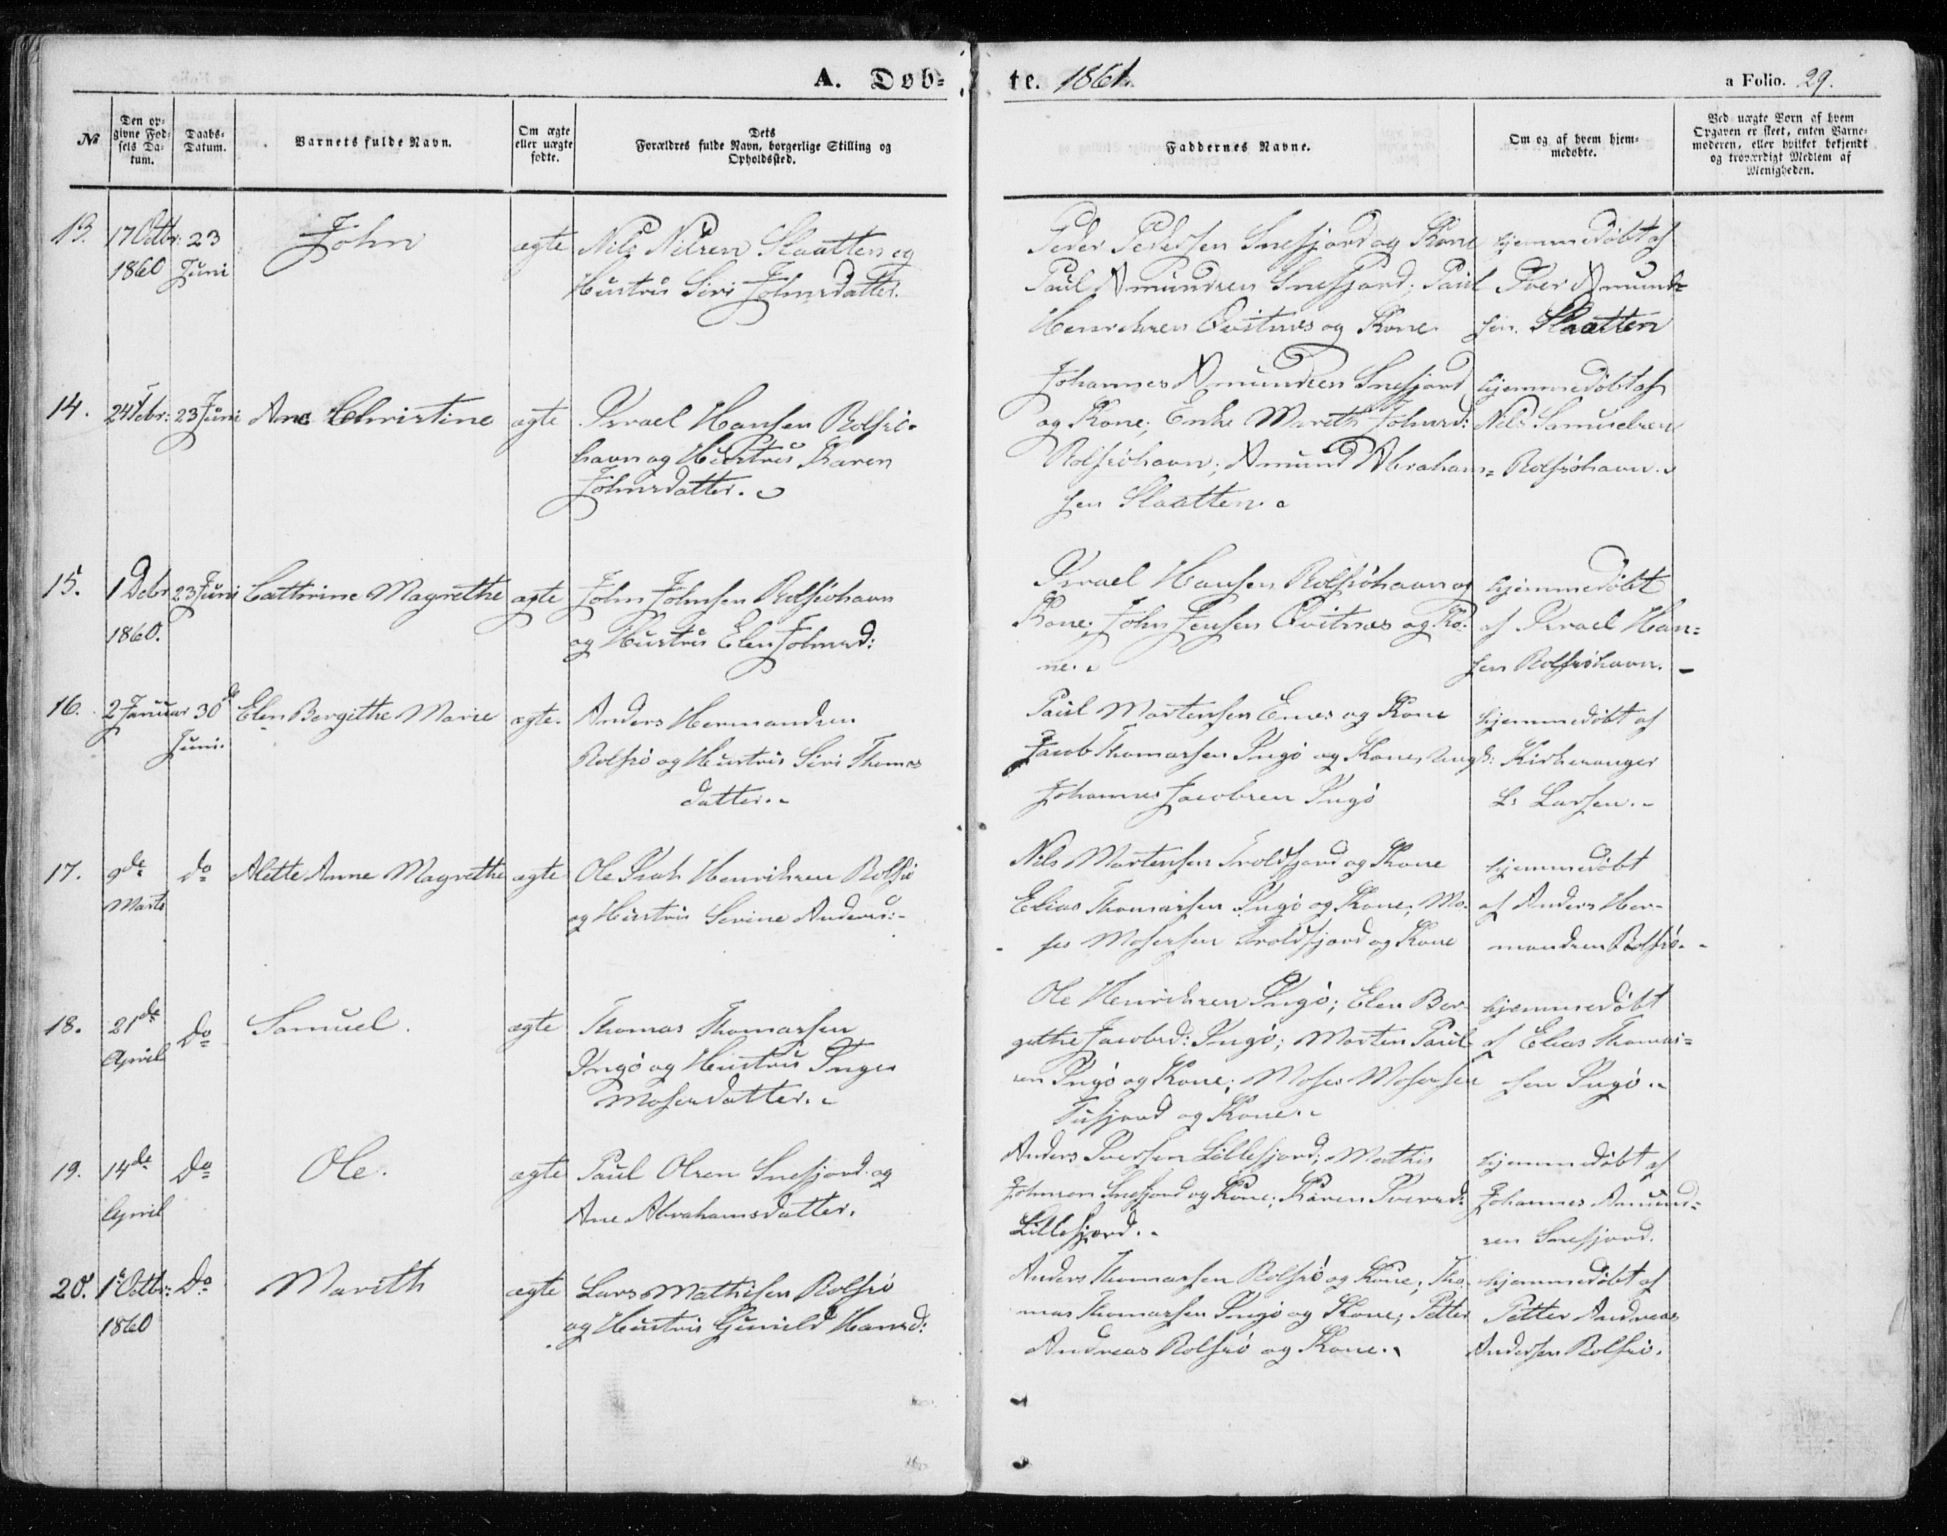 A. Døb-
te. 1861.
a Folio. 29.
No
Den op-
givne Fød-
sels Da-
tum.
Daabs-
Datum.
Barnets fulde Navn.
Om ægte
eller uægte
fødte.
Dets
Forældres fulde Navn, borgerlige Stilling og
Opholdssted.
Faddernes Navne.
Om og af hvem hjem-
medøbte.
Ved uægte Børn af hvem
Opgaven er skeet, enten Barne-
moderen, eller hvilket bekjendt
og troværdigt Medlem af
Menigheden.
13.
17 Octbr:
1860
23
Juni
John
ægte
Nils Nilsen Slaatten og
Hustru Siri Johnsdatter.
Peder Pedersen Snefjord og Kone
Paul Amundsen Snefjord; Paul
Henriksen Qvitnæs og Kone
hjemmedøbt af
Iver Amund-
sen Slaatten
14.
24 Febr:
23 Juni
Ane Christine
ægte
Israel Hansen Rolfsø-
havn og Hustru Karen
Johnsdatter.
Johannes Amundsen Snefjord
og Kone; Enke Marith Johnsd:
Rolfsøhavn; Amund Abraham-
sen Slaatten.
hjemmedøbt af
Nils Samuelsen
Rolfsøhavn.
15.
1 Debr
1860.
23 Juni
Cathrine Magrethe
ægte
John Johnsen Rolfsøhavn
og Hustru Elen Johnsd:
Israel Hansen Rolfsøhavn og
Kone; John Jensen Qvitnæs og Ko-
ne.
hjemmedøbt
af Israel Han-
sen Rolfsøhavn.
16.
2 Januar
30d
Juni.
Elen Bergithe Marie
ægte.
Anders Hermandsen
Rolfsø og Hustru Siri Thomas
datter.
Paul Mortensen Enes og Kone
Jacob Thomassen Ingø og Kone; Ungk:
Johannes Jacobsen Ingø
hjemmedøbt af
Kirkesanger
L: Larsen.
17.
9de
Marts
Do
Alette Anne Magrethe
ægte
Ole Isak Henriksen Rolfsø
og Hustru Serine Andersd:
Nils Mortensen Troldfjord og Kone
Elias Thomassen Ingø og Kone; Mo-
ses Mosessen Troldfjord og Kone
hjemmedøbt
af Anders Her-
mandsen Rolfsø.
18.
21de
April
Do
Samuel.
ægte
Thomas Thomassen
Ingø og Hustru Inger
Mosesdatter.
Ole Henriksen Ingø; Elen Ber-
gethe Jacobsd: Ingø; Morten Paul-
sen Ingø og Kone; Moses Mosessen
Tufjord og Kone.
hjemmedøbt
af Elias Thomas-
sen Ingø.
19.
14de
April
Do
Ole.
ægte
Paul Olsen Snefjord og
Ane Abrahamsdatter.
Anders Iversen Lillefjord; Mathis
Johnsen Snefjord og Kone; Karen Iversd:
Lillefjord.
hjemmedøbt af
Johannes Amund-
sen Snefjord.
20.
1e Octbr:
1860
Do
Marith
ægte
Lars Mathisen Rolfsø
og Hustru Gunild Hansd:
Anders Thomassen Rolfsø og Kone; Tho-
mas Thomassen Ingø og Kone; Petter
Andreas Rolfsø og Kone.
hjemmedøbt af
Petter Andreas
Andersen Rolfsø.